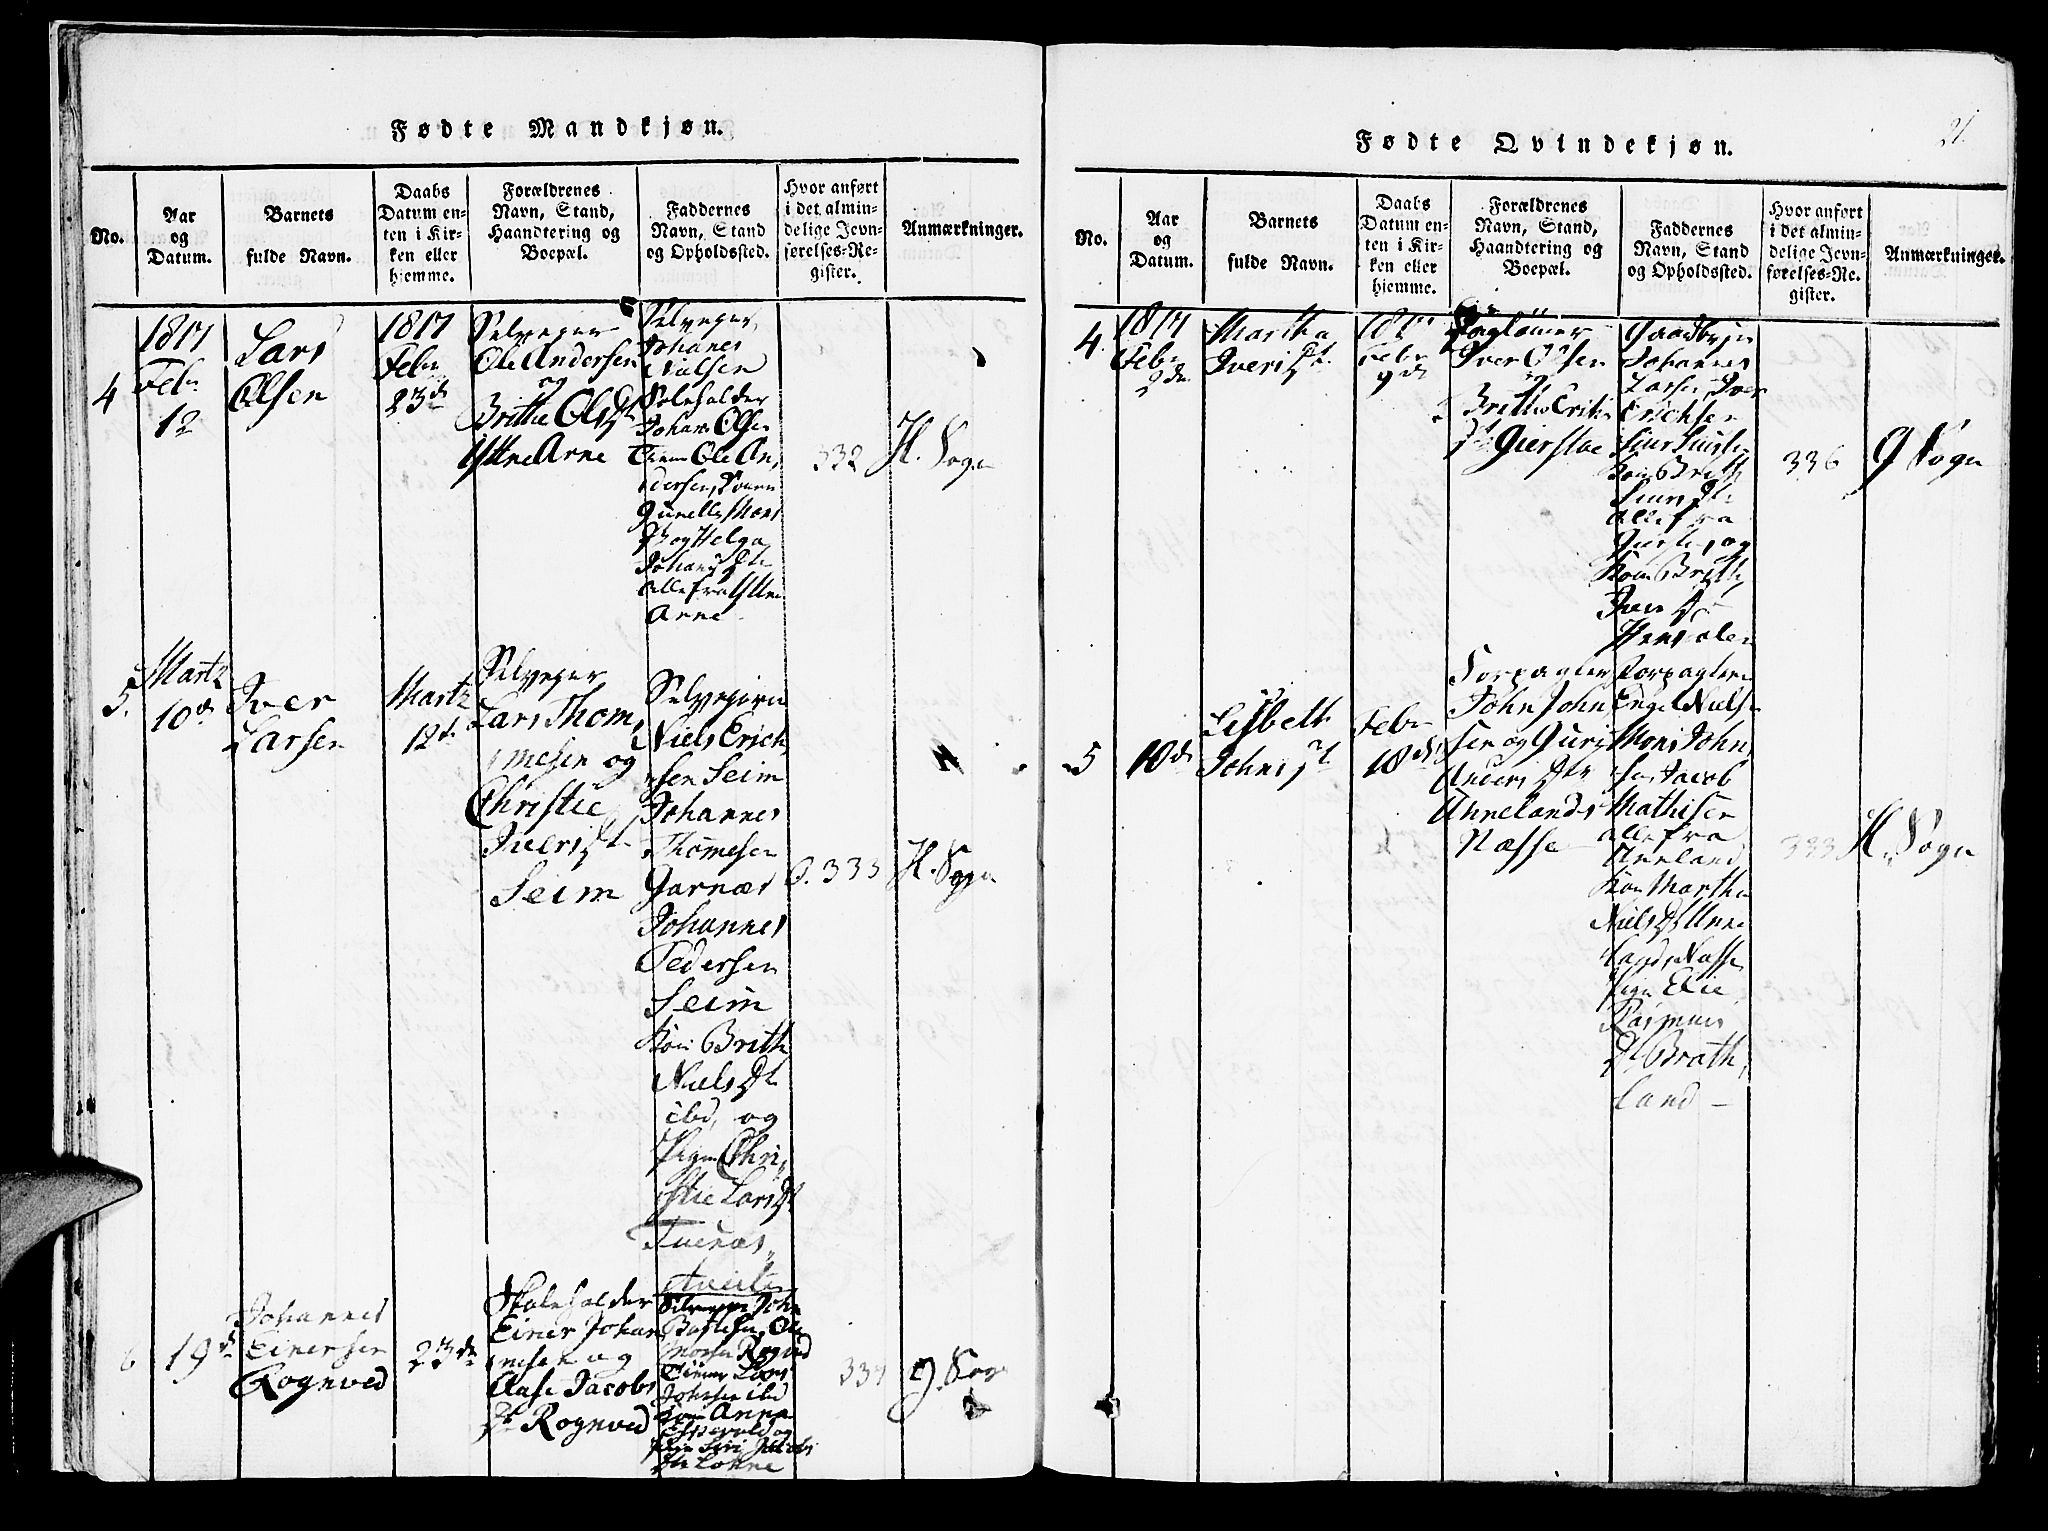 Fødte Mandkjøn.
No.
Aar
og
Datum.
Barnets
fulde Navn.
Daabs
Datum en-
ten i Kir-
ken eller
hjemme.
Forældrenes
Navn, Stand,
Haandtering og
Boepæl.
Faddernes
Navn, Stand
og Opholdssted.
Hvor anført
i det almin-
delige Jevn-
førelses-Re-
gister.
Anmærkninger.
4
1817
Febr
12
Lars
Olsen
1817
Febr
23de
Selveyer
Ole Andersen
og
Brittie Ols Dt
Yttre Arne
Selveyer
Johanes
Nilsen
Johans Olsen
Ole An,
dersen,
Mons
Dt og Helga
Johans Dt
alle fra Yttre
Arne
332
H. Sogn
5.
Martz
10de
Iver
Larsen
Martz
12te
Selveyer
Lars Thom,
mesen og
Christie
Ivers Dt
Seim
Selveyerne
Niels Erich,
sen Seim
Johannes
Thomesen
Garnæs
Johannes
Pedersen
Seim
Kon Brithe
Niels Dt
ibd, og
Pigen Chri,
stie Lars Dt
333
H. Sogn
6
19de
Johannes
Einersen
Rognved
23de
Skoleholder
Einer Johan
nesen og
Aase Jacobs
Dt Rognved
Selveyer John
Johnsen ibd
Kon Anna
Espevold og
Pige Siri Jacobs
Dt Lohne
334
G. Sogn
Fødte Qvindekjøn.
21.
No.
Aar
og
Datum.
Barnets
fulde Navn.
Daabs
Datum en-
ten i Kir-
ken eller
hjemme.
Forældrenes
Navn, Stand,
Haandtering og
Boepæl.
Faddernes
Navn, Stand
og Opholdssted.
Hvor anført
i det almin-
delige Jevn-
førelses-Re-
gister.
Anmærkninger.
4
1817
Febr
2den
Martha
Iveris Dt
1817
Febr
9de
Iver Olsen
og
Brithe Erik
Dt Gierstae
Johannes
Larsen, Iver
Erichsen
Kon Brith
Siurs Dt
alle fra
og
Kon Brithe
Ivers Dt
336
G Sogn
5
10de
Lisbeth
Johns Dt
Febr
18de
Torpagter
John John,
sen og Guri
Anders Dtr
Annelands
Næsse
Torpagtere
Engel Nielsen
Mons John,
sen Jacob
Mathisen
alle fra
Anneland
Kon Martha
Niels Dt Anne
lands Næsse
Pigen
Rasmus
Dt Brath,
land
333
H. Sogn